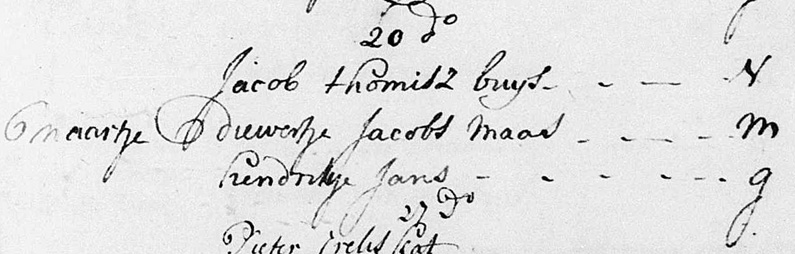 20 do
Jacob thomisz buijs - - - N
maartje diewertje Jacobs maas - - - m
hendrikje Jans - - - - - g
27 do
Pieter Crelis Kat